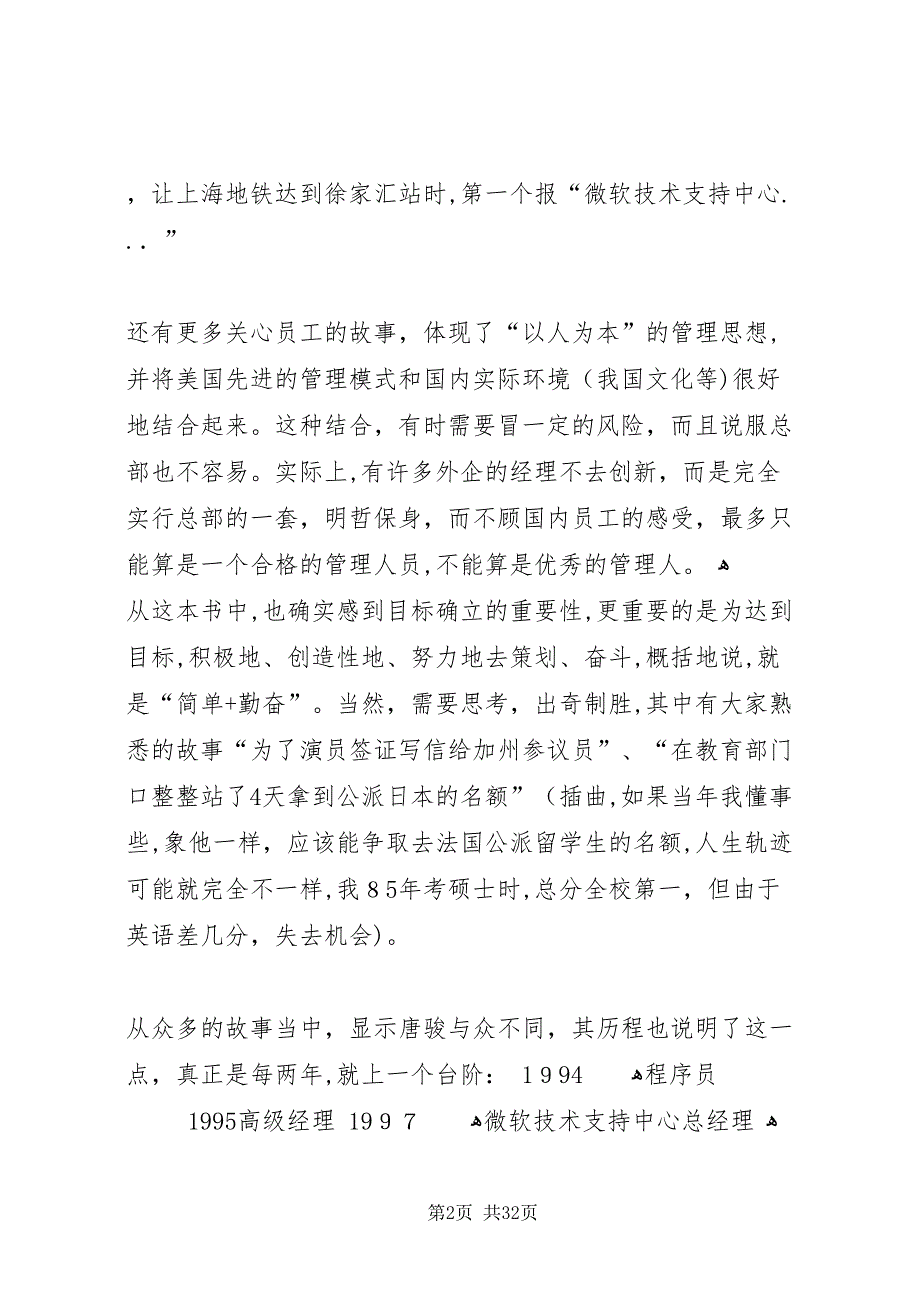 ，让上海地铁达到徐家汇站时,第一个报“微软技术支持中心.
..”
还有更多关心员工的故事，体现了“以人为本”的管理思想,
并将美国先进的管理模式和国内实际环境（我国文化等)很好
地结合起来。这种结合，有时需要冒一定的风险，而且说服总
部也不容易。实际上,有许多外企的经理不去创新，而是完全
实行总部的一套，明哲保身，而不顾国内员工的感受，最多只
能算是一个合格的管理人员,不能算是优秀的管理人。 ﻫ
从这本书中,也确实感到目标确立的重要性,更重要的是为达到
目标,积极地、创造性地、努力地去策划、奋斗,概括地说,就
是“简单+勤奋”。当然，需要思考，出奇制胜,其中有大家熟
悉的故事“为了演员签证写信给加州参议员”、“在教育部门
口整整站了4天拿到公派日本的名额”（插曲,如果当年我懂事
些,象他一样，应该能争取去法国公派留学生的名额,人生轨迹
可能就完全不一样,我８5年考硕士时,总分全校第一，但由于
英语差几分，失去机会)。
从众多的故事当中，显示唐骏与众不同，其历程也说明了这一
点，真正是每两年,就上一个台阶： １994 ﻫ程序员
1995高级经理 19９７ ﻫ微软技术支持中心总经理 ﻫ
第2页 共32页